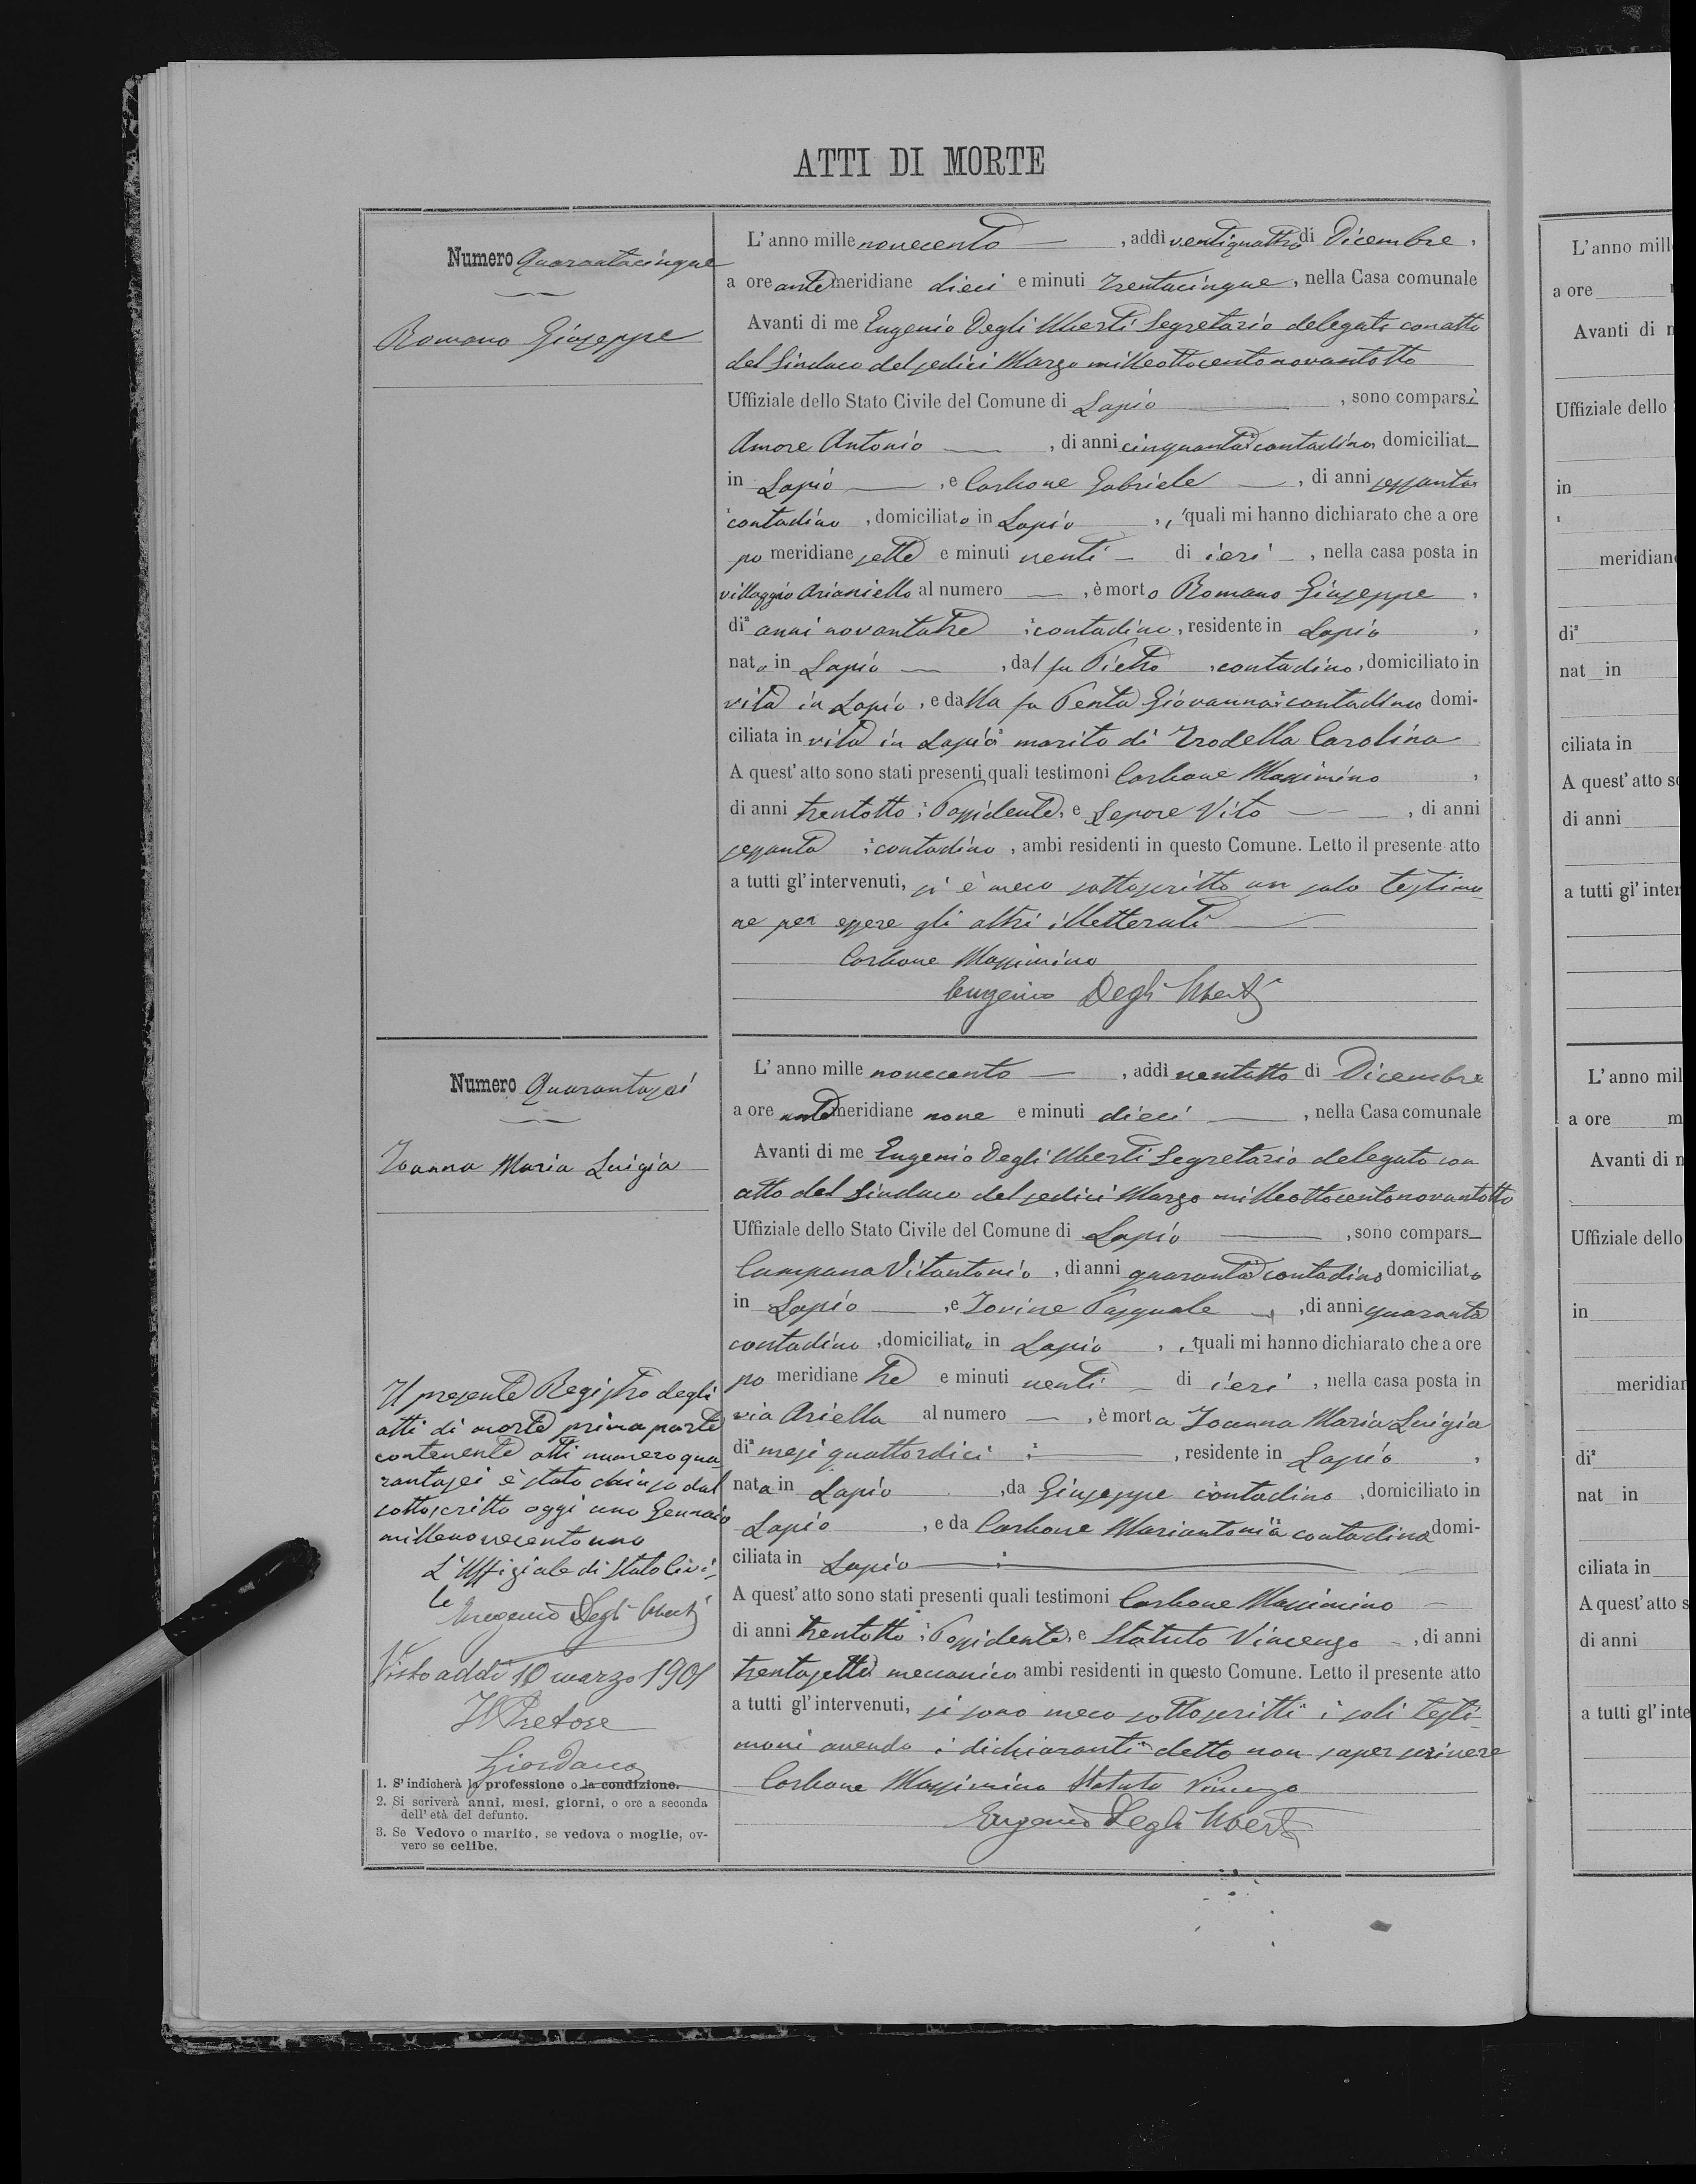 ATTI DI MORTE
Numero Quarantacinque
Romano Giuseppe
L'anno millenovecento — , addì ventiquattro di Dicembre ,
a ore antemeridiane dieci e minuti trentacinque, nella Casa comunale
Avanti di me Eugenio Degli Uberti Segretario delegato con atto
del Sindaco del sedici Marzo milleottocentonovantotto
Uffiziale dello Stato Civile del Comune di Lapio — , sono comparsi
Amore Antonio — , di anni cinquanta contadino, domiciliat_
in Lapio — , e Carbone Gabriele — , di anni sessanta
contadino , domiciliato in Lapio , i quali mi hanno dichiarato che a ore
po meridiane sette e minuti venti — di ieri — , nella casa posta in
villaggio Arianiello al numero — , è morto Romano Giuseppe ,
di² anni novantatre contadino, residente in Lapio ,
nato in Lapio — , dal fu Pietro , contadino, domiciliato in
vita in Lapio , e dalla fu Penta Giovanna contadina domi-
ciliata in vita in Lapio³ marito di Trodella Carolina
A quest'atto sono stati presenti quali testimoni Carbone Massimino ,
di anni trentotto , Possidente, e Lepore Vito — , di anni
sessanta contadino , ambi residenti in questo Comune. Letto il presente atto
a tutti gl'intervenuti, si è meco sottoscritto un solo testimo-
ne per essere gli altri illetterati —
Carbone Massimino
Eugenio Degli Uberti
Numero Quarantasei
Ioanna Maria Luigia
L'anno mille novecento — , addì ventotto di Dicembre
a ore antemeridiane nove e minuti dieci — , nella Casa comunale
Avanti di me Eugenio Degli Uberti Segretario delegato con
atto del Sindaco del sedici Marzo milleottocentonovantotto
Uffiziale dello Stato Civile del Comune di Lapio — , sono compars_
Campana Vitantonio , di anni quaranta contadino domiciliato
in Lapio — , e Iovine Pasquale , di anni quaranta
contadino , domiciliato in Lapio , i quali mi hanno dichiarato che a ore
po meridiane tre e minuti venti — di ieri , nella casa posta in
via Ariella al numero — , è morta Ioanna Maria Luigia
di² mesi quattordici — , residente in Lapio ,
nata in Lapio , da Giuseppe contadino , domiciliato in
Lapio , e da Carbone Mariantonia contadina domi-
ciliata in Lapio —
A quest'atto sono stati presenti quali testimoni Carbone Massimino —
di anni trentotto , Possidente, e Statuto Vincenzo — , di anni
trentasette meccanico ambi residenti in questo Comune. Letto il presente atto
a tutti gl'intervenuti, si sono meco sottoscritti i soli testi-
moni avendo i dichiaranti detto non saper scrivere
Carbone Massimino Statuto Vincenzo
Eugenio Degli Uberti
Il presente Registro degli
atti di morte prima parte
contenente atti numero qua-
rantasei è stato chiuso dal
sottoscritto oggi uno Gennaio
millenovecentouno
L'Uffiziale di Stato Civi-
le Eugenio Degli Uberti
Visto addì 10 marzo 1901
Il Pretore
Giordano
1. S'indicherà la professione o la condizione.
2. Si scriverà anni, mesi, giorni, o ore a seconda
dell'età del defunto.
3. Se Vedovo o marito, se vedova o moglie, ov-
vero se celibe.
L'anno mill
a ore
Avanti di
Uffiziale dello
in
meridian
di²
nat_ in
ciliata in
A quest'atto
di anni
a tutti gl'inter
L'anno mil
a ore m
Avanti di
Uffiziale dello
in
meridian
di²
nat_ in
ciliata in
A quest'atto s
di anni
a tutti gl'inte